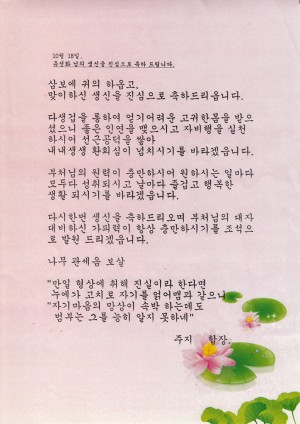 10월 18일.
윤선화 님의 생신을 진심으로 축하 드립니다.
삼보에 귀의 하옵고,
맞이하신 생신을 진심으로 축하드리옵니다.
다생겁을 통하여 얻기어려운 고귀한몸을 받으
셨으니 좋은 인연을 맺으시고 자비행을 실천
하시어 선근공덕을 쌓아
내내생생 환희심이 넘치시기를 바라겠읍니다.
부처님의 원력이 충만하시어 원하시는 일마다
모두다 성취되시고 날마다 즐겁고 행복한
생활 되시기를 바라겠읍니다.
다시한번 생신을 축하드리오며 부처님의 대자
대비하신 가피력이 항상 충만하시기를 조석으
로 발원 드리겠읍니다.
나무 관세음 보살
"만일 형상에 취해 진실이라 한다면
누에가 고치로 자기를 얽어맴과 같으니
"자기마음의 망상이 속박 하는데도
범부는 그를 능히 알지 못하네"
주지 합장.